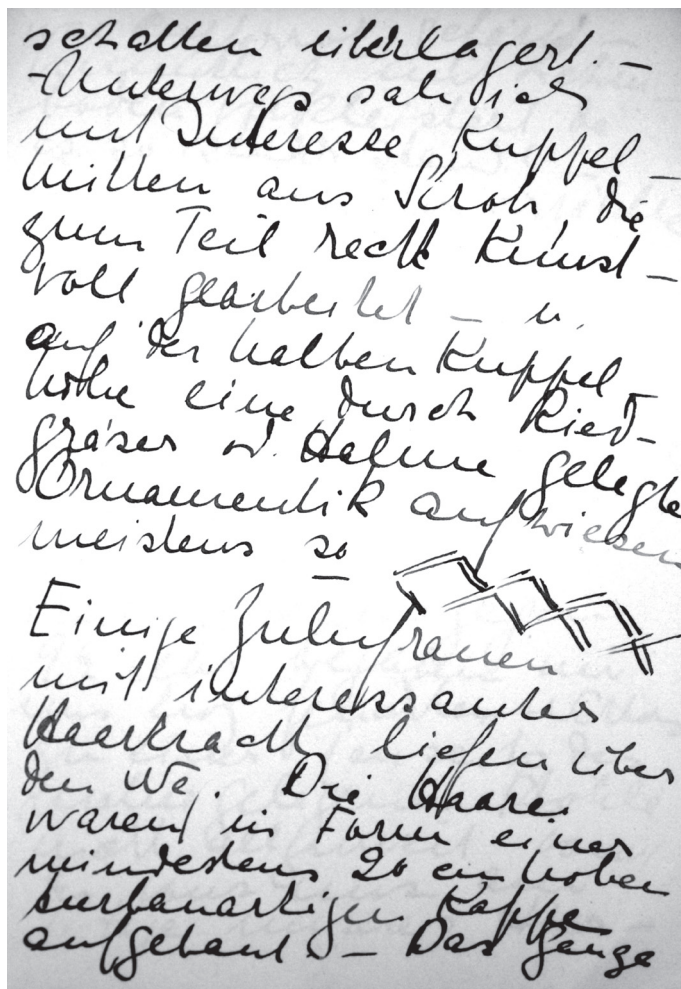 schatten überlagert. –
– Unterwegs sah ich
mit Interesse Kuppel–
hütten aus Stroh die
zum Teil recht kunst–
voll gearbeitet – u.
auf der halben Kuppel–
höhe eine durch Ried–
gräser u. Halme gelegte
Ornamentik aufwiesen
meistens so
Einige Zulufrauen
mit interessanter
Haartracht liefen über
den Weg. Die Haare
waren in Form einer
mindestens 20 cm hohen
turbanartigen Kappe
aufgebaut. – Das Ganze